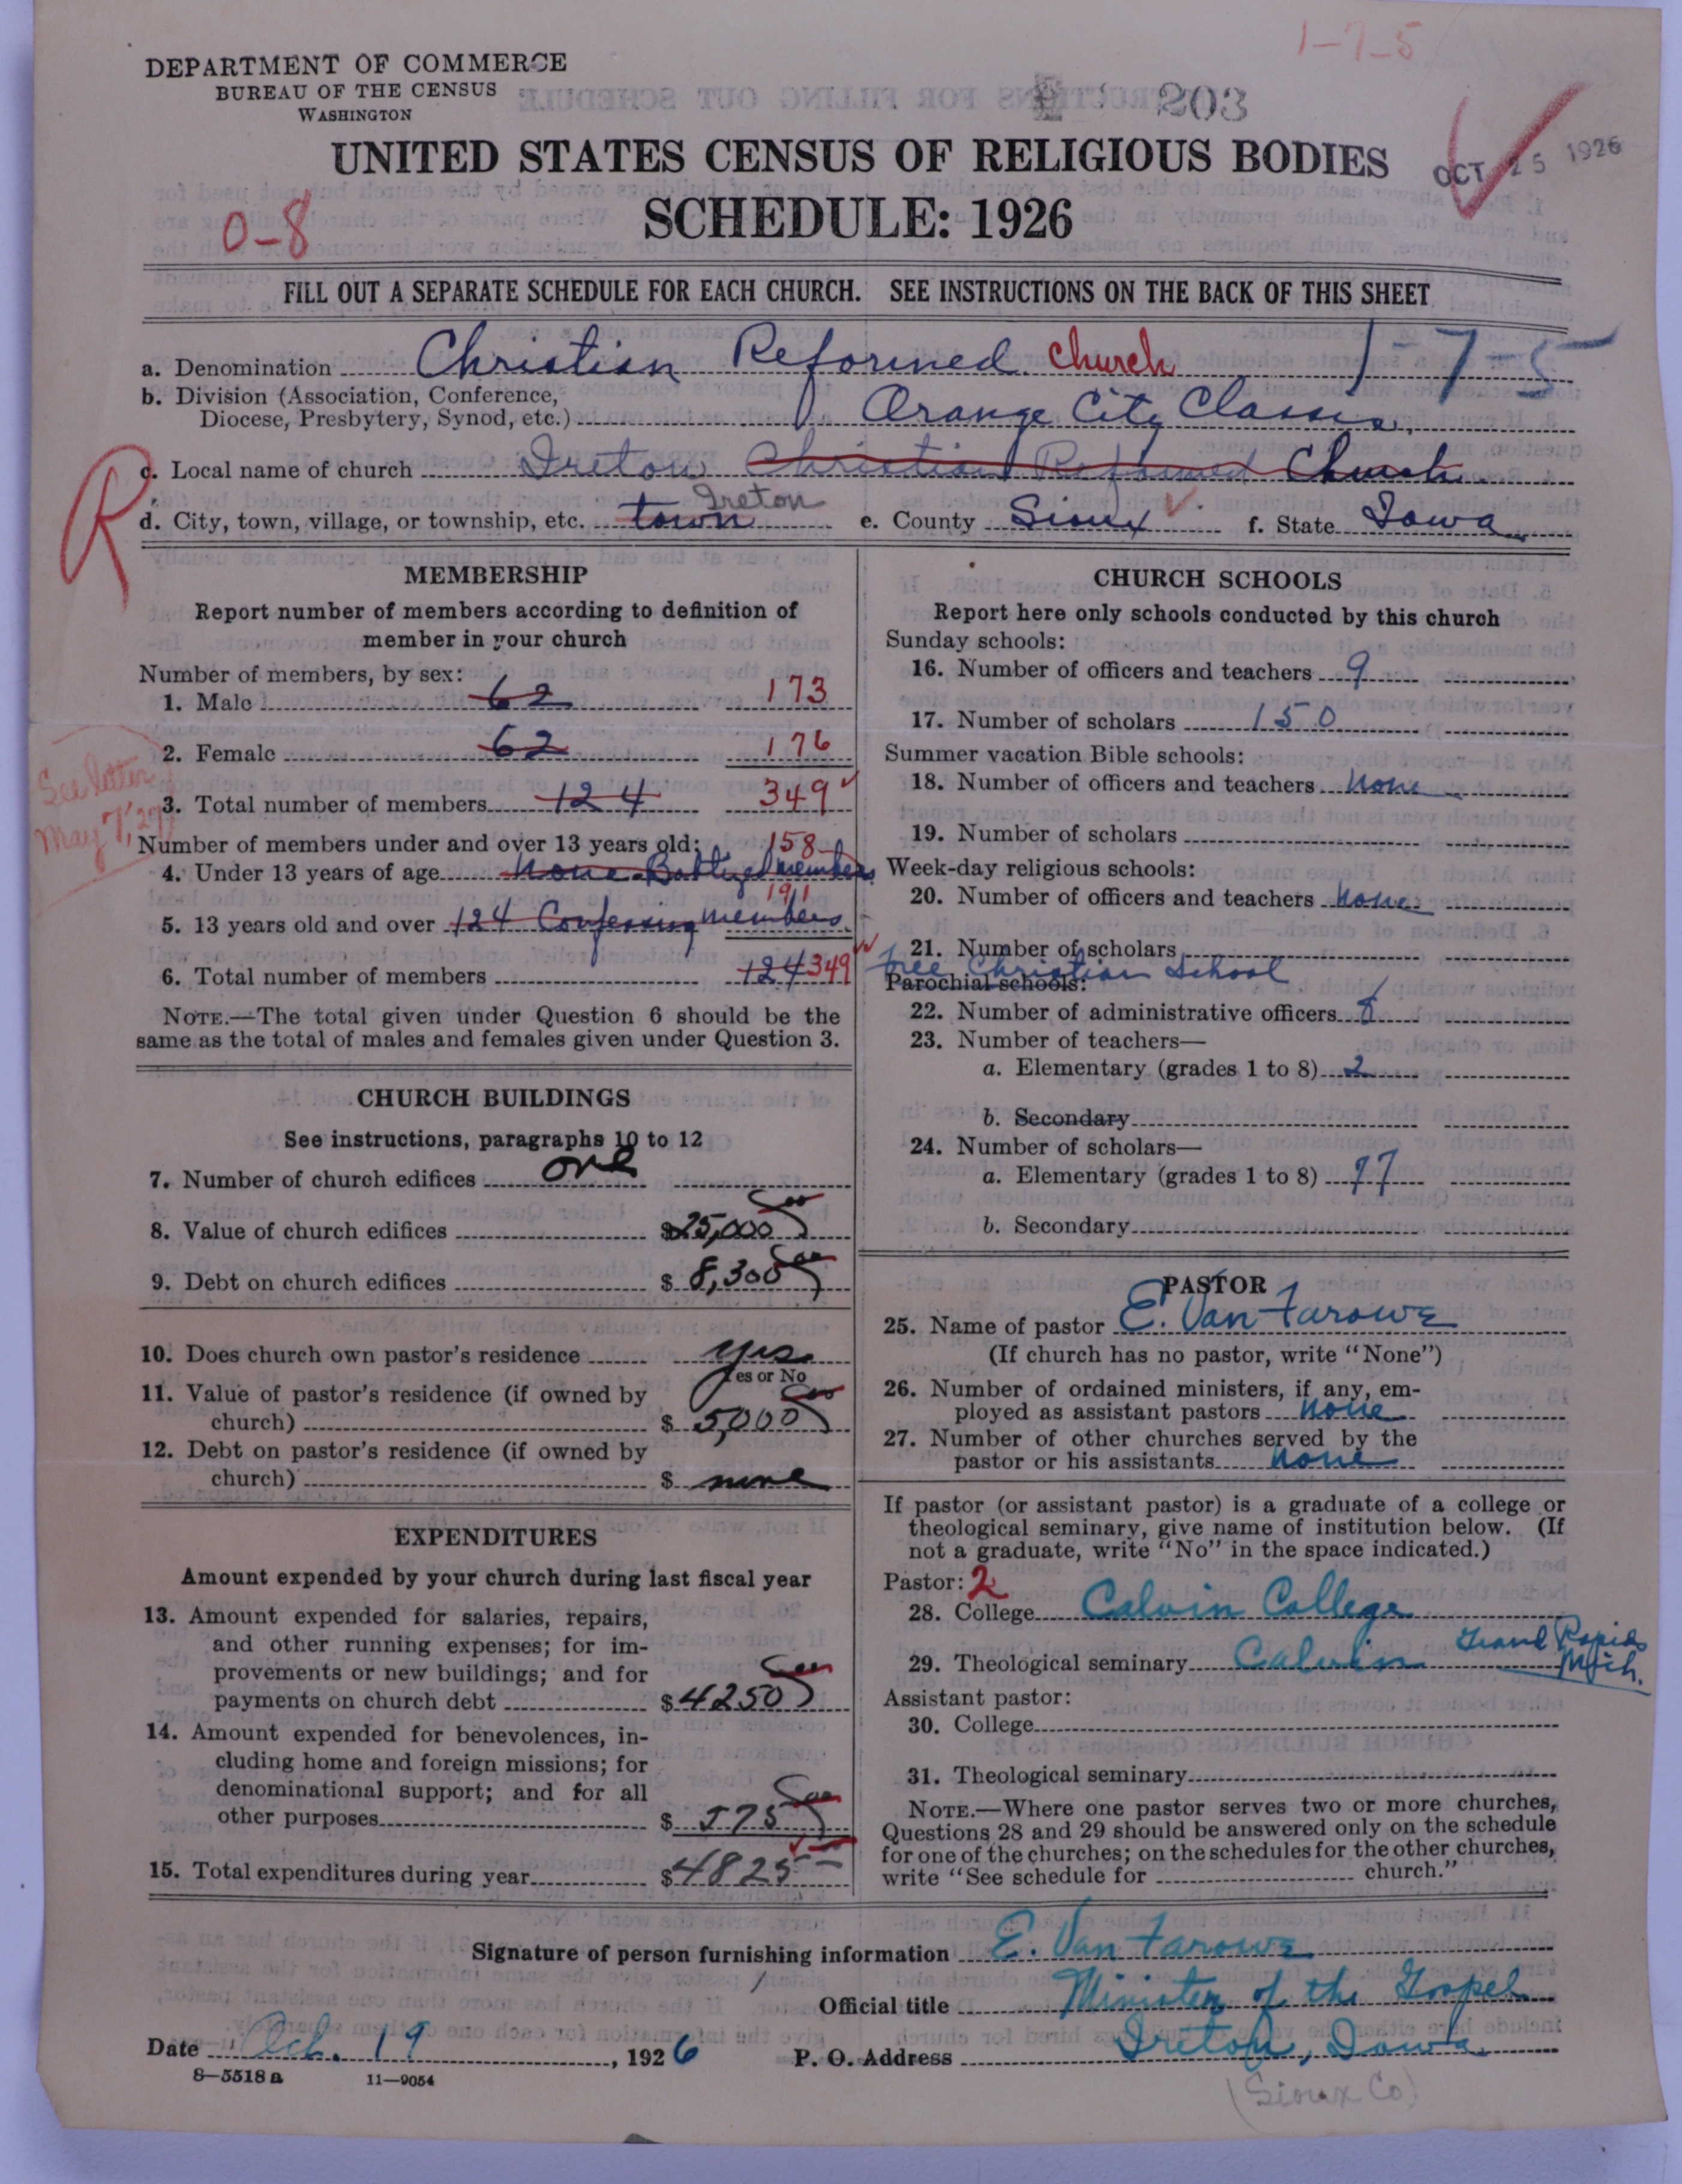 1-7-5
DEPARTMENT OF COMMERCE
BUREAU OF THE CENSUS
WASHINGTON
203
UNITED STATES CENSUS OF RELIGIOUS BODIES
OCT 25 1926
SCHEDULE: 1926
0-8
FILL OUT A SEPARATE SCHEDULE FOR EACH CHURCH. SEE INSTRUCTIONS ON THE BACK OF THIS SHEET
a. Denomination Christian Reformed Church 1-7-5
b. Division (Association, Conference,
Diocese, Presbytery, Synod, etc.) Orange City Classis
c. Local name of church Ireton Christian Reformed Church
R
d. City, town, village, or township, etc. town Ireton e. County Sioux f. State Iowa
MEMBERSHIP
Report number of members according to definition of
member in your church
Number of members, by sex:
1. Male 62 173
2. Female 62 176
See letter
May 7, '27
3. Total number of members 124 349
Number of members under and over 13 years old:
158
4. Under 13 years of age none Baptized members
191
5. 13 years old and over 124 Confessing members
6. Total number of members 124 349
NOTE.—The total given under Question 6 should be the
same as the total of males and females given under Question 3.
CHURCH BUILDINGS
See instructions, paragraphs 10 to 12
7. Number of church edifices one
8. Value of church edifices $25,000
9. Debt on church edifices $ 8,300
10. Does church own pastor's residence yes
Yes or No
11. Value of pastor's residence (if owned by
church) $ 5,000
12. Debt on pastor's residence (if owned by
church) $ none
EXPENDITURES
Amount expended by your church during last fiscal year
13. Amount expended for salaries, repairs,
and other running expenses; for im-
provements or new buildings; and for
payments on church debt $ 4250
14. Amount expended for benevolences, in-
cluding home and foreign missions; for
denominational support; and for all
other purposes $ 575
15. Total expenditures during year $ 4825
CHURCH SCHOOLS
Report here only schools conducted by this church
Sunday schools:
16. Number of officers and teachers 9
17. Number of scholars 150
Summer vacation Bible schools:
18. Number of officers and teachers None
19. Number of scholars
Week-day religious schools:
20. Number of officers and teachers None
21. Number of scholars
free Christian School
Parochial schools:
22. Number of administrative officers
23. Number of teachers—
a. Elementary (grades 1 to 8) 2
b. Secondary
24. Number of scholars—
a. Elementary (grades 1 to 8) 77
b. Secondary
PASTOR
25. Name of pastor E. Van Farowe
(If church has no pastor, write "None")
26. Number of ordained ministers, if any, em-
ployed as assistant pastors None
27. Number of other churches served by the
pastor or his assistants None
If pastor (or assistant pastor) is a graduate of a college or
theological seminary, give name of institution below. (If
not a graduate, write "No" in the space indicated.)
Pastor: 2
28. College Calvin College
29. Theological seminary Calvin Grand Rapids
Mich.
Assistant pastor:
30. College
31. Theological seminary
NOTE.—Where one pastor serves two or more churches,
Questions 28 and 29 should be answered only on the schedule
for one of the churches; on the schedules for the other churches,
write "See schedule for church."
Signature of person furnishing information E. Van Farowe
Official title Minister of the Gospel
Date Oct. 19, 1926 P. O. Address Ireton, Iowa
8-5518 a 11-9054
(Sioux Co)